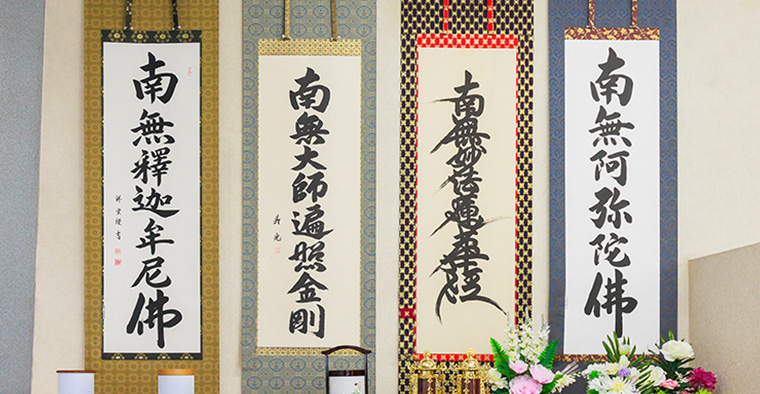 南無釋迦牟尼佛
南無大師遍照金剛
南無妙法蓮華経
南無阿弥陀佛